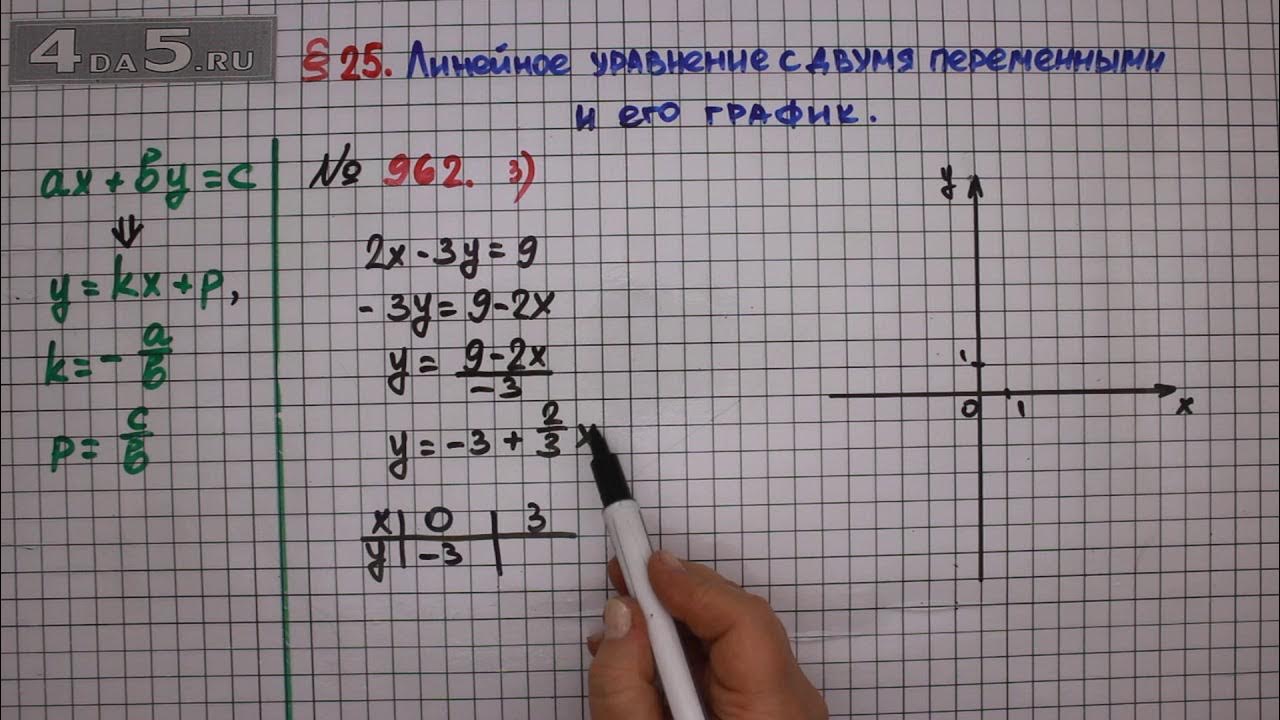 4DA5.RU
§ 25. Линейное уравнение с двумя переменными
и его график.
ax + by = c
⇓
y = kx + p,
k = - a/b
p = c/b
№ 962. 3)
2x - 3y = 9
- 3y = 9 - 2x
y = (9 - 2x)/(-3)
y = -3 + 2/3 x
x | 0 | 3
y | -3 |
y
1
0 1 x